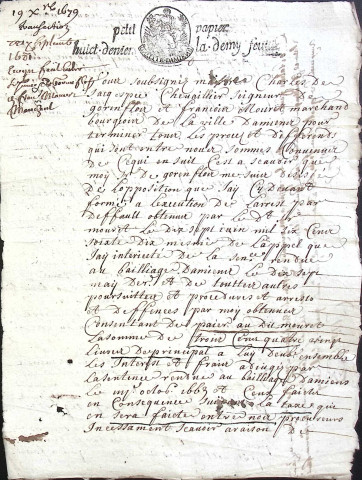 19 Xbre 1679
transaction
petit papier
huict deniers la demy feuille
Nous soubsignez Charles de
Sacquespee Chevaillier Seigneur de
gorenflon et francois Mouret marchand
bourgeois de la ville Damiens pour
terminer tous les proces et differends
qui sont entre nous sommes Convenus
de Cequi en suit Cest a scavoir que
moy Sr de gorenflon me suis desisté
de Lopposition que Jay Cy devant
formé a Lexecution de Larrest par
deffault obtenue par le dt Sr
mouret le dix sept Juin mil six Cens
soixante dix de Lappel que
Jay interjetté de la sence rendue
au bailliage Damiens le dix sept
may der et de touttes autres
poursuittes et procedures et arrests
et deffences par moy obtenues
Consentant de paier au dit mouret
La somme de trois Cens quatre vingt
livres de principal a luy deubs ensemble
Les Interest et fraix adiugés par
La sentence rendue au bailliage Damiens
le octob. 1669 et Cens faicts
en Consequence Suivant la taxe que
en sera faicte entre nos procureurs
Incessament scavoir a raison de